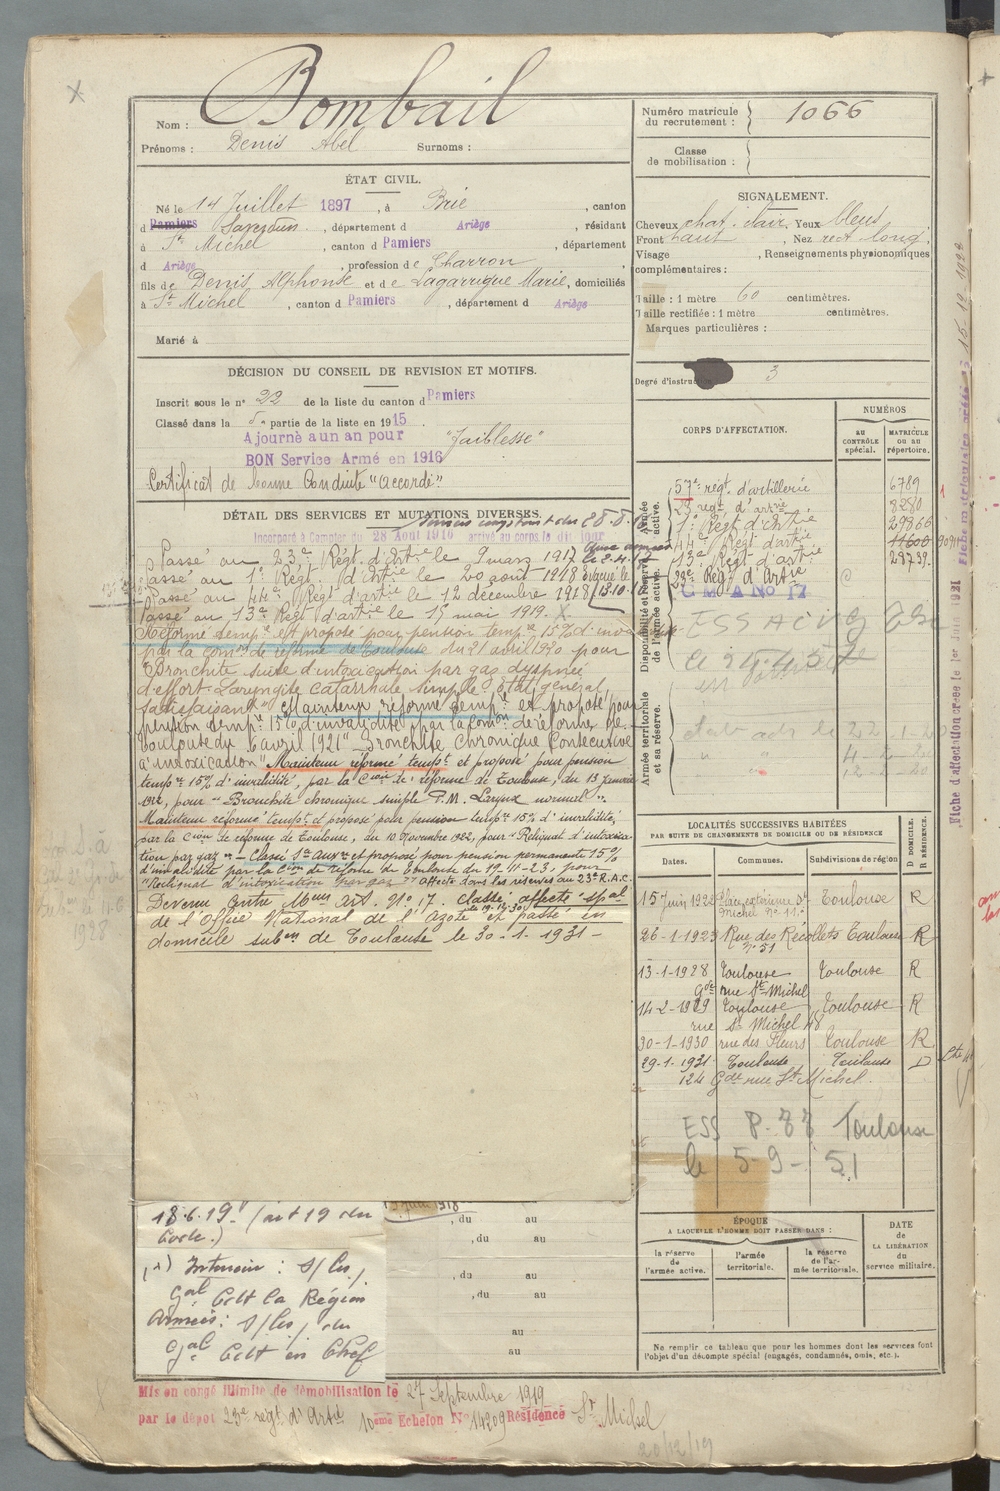 Bombail
Nom :
Prénoms : Denis Abel Surnoms :
ÉTAT CIVIL.
Né le 14 Juillet 1897, à Brie, canton
d Pamiers Saverdun, département d Ariège, résidant
à St Michel, canton d Pamiers, département
d Ariège, profession de Charron
fils de Denis Alphonse et de Lagarrigue Marie, domiciliés
à St Michel, canton d Pamiers, département d Ariège
Marié à
DÉCISION DU CONSEIL DE REVISION ET MOTIFS.
Inscrit sous le n° 22 de la liste du canton d Pamiers
Classé dans la 5e partie de la liste en 1915.
Ajourné a un an pour "Faiblesse"
BON Service Armé en 1916
Certificat de bonne Conduite "Accordé"
DÉTAIL DES SERVICES ET MUTATIONS DIVERSES.
Incorporé à Compter du 28 Août 1916 arrivé au corps le dit jour
Passé au 23e Régt. d'Artie le 9 mars 1917
Passé au 1er Régt. d'Artie le 20 août 1918 évacué le
Passé au 44e Régt d'artie le 12 décembre 1918 13.10.
Passé au 13e Régt d'artie le 15 mai 1919. X
Réformé tempre et proposé pour pension tempre 15% d'inva
par la Comon de réforme de Toulouse du 21 avril 1920 pour
Bronchite suite d'intoxication par gaz dyspnée
d'effort. Laryngite catarrhale simple. Etat général
satisfaisant" Maintenu réformé tempre et proposé pour
pension tempre 15% d'invalidité par la Comon de réforme de
Toulouse du 6 avril 1921 "Bronchite chronique consécutive
à intoxication" Maintenu réformé tempre et proposé pour pension
tempre 15% d'invalidité, par la Cion de réforme de Toulouse, du 13 Janvier
1922, pour "Bronchite chronique simple P.M. Larynx normal".
Maintenu réformé tempre et proposé pour pension tempre 15% d'invalidité,
par la Cion de réforme de Toulouse, du 10 Novembre 1922, pour "Reliquat d'intoxica-
tion par gaz" - Classé Sce Auxre et proposé pour pension permanente 15%
d'invalidité par la Cion de réforme de Toulouse du 19-11-23, pour
"Reliquat d'intoxication par gaz" Affecté dans les réserves au 23e R.A.C.
Devenu Centre Mon Art. N° 17. Classé affecté spal
de l'Office National de l'Azote et passé en
domicile subon de Toulouse le 30-1-1931-
18.6.19" (art 19 du
Code.)
Intérieur : s/ les
Gal Cdt la Région
Armées : s/ les, du
Gal Cdt en Chef
, du au
, du au
, du au
, du au
au
au
Mis en congé illimité de démobilisation le 27 Septembre 1919
par le dépôt 23e régt d'Artie 10eme Echelon N° 14209 Résidence St Michel
20/12/19
Numéro matricule
du recrutement : 1066
Classe
de mobilisation :
SIGNALEMENT.
Cheveux chat. clair. Yeux bleus
Front haut, Nez rect long.
Visage , Renseignements physionomiques
complémentaires :
Taille : 1 mètre 60 centimètres.
Taille rectifiée : 1 mètre centimètres.
Marques particulières :
Degré d'instruction 3
CORPS D'AFFECTATION.
NUMÉROS
AU CONTRÔLE spécial.
MATRICULE ou au répertoire.
Armée active.
57e régt. d'artillerie 6789
23 régt d'artie 8280
1er Régt d'Artie 29866
44e Régt d'artie 11600
13e Régt d'artie 28739.
23e Rég. d'Artie
C M A No 17
Disponibilité et Réserve de l'armée active.
Armée territoriale et sa réserve.
LOCALITÉS SUCCESSIVES HABITÉES
PAR SUITE DE CHANGEMENTS DE DOMICILE OU DE RÉSIDENCE
Dates. Communes. Subdivisions de région D DOMICILE. R RÉSIDENCE.
15 Juin 1922 Place extérieure St Michel N° 11 Toulouse R
26-1-1923 Rue des Récollets N° 51 Toulouse R
13-1-1928 Toulouse Toulouse R
Gde rue St Michel
14-2-1929 Toulouse Toulouse R
rue St Michel 48
30-1-1930 rue des Fleurs Toulouse R
29-1-1931 Toulouse Toulouse D
124 Gde rue St Michel.
ESS P-77 Toulouse
le 5-9-51
ÉPOQUE
A LAQUELLE L'HOMME DOIT PASSER DANS :
la réserve de l'armée active.
l'armée territoriale.
la réserve de l'armée territoriale.
DATE de LA LIBÉRATION du service militaire.
Ne remplir ce tableau que pour les hommes dont les services font
l'objet d'un décompte spécial (engagés, condamnés, omis, etc.).
Fiche d'affectation créée le 1er Juin 1921